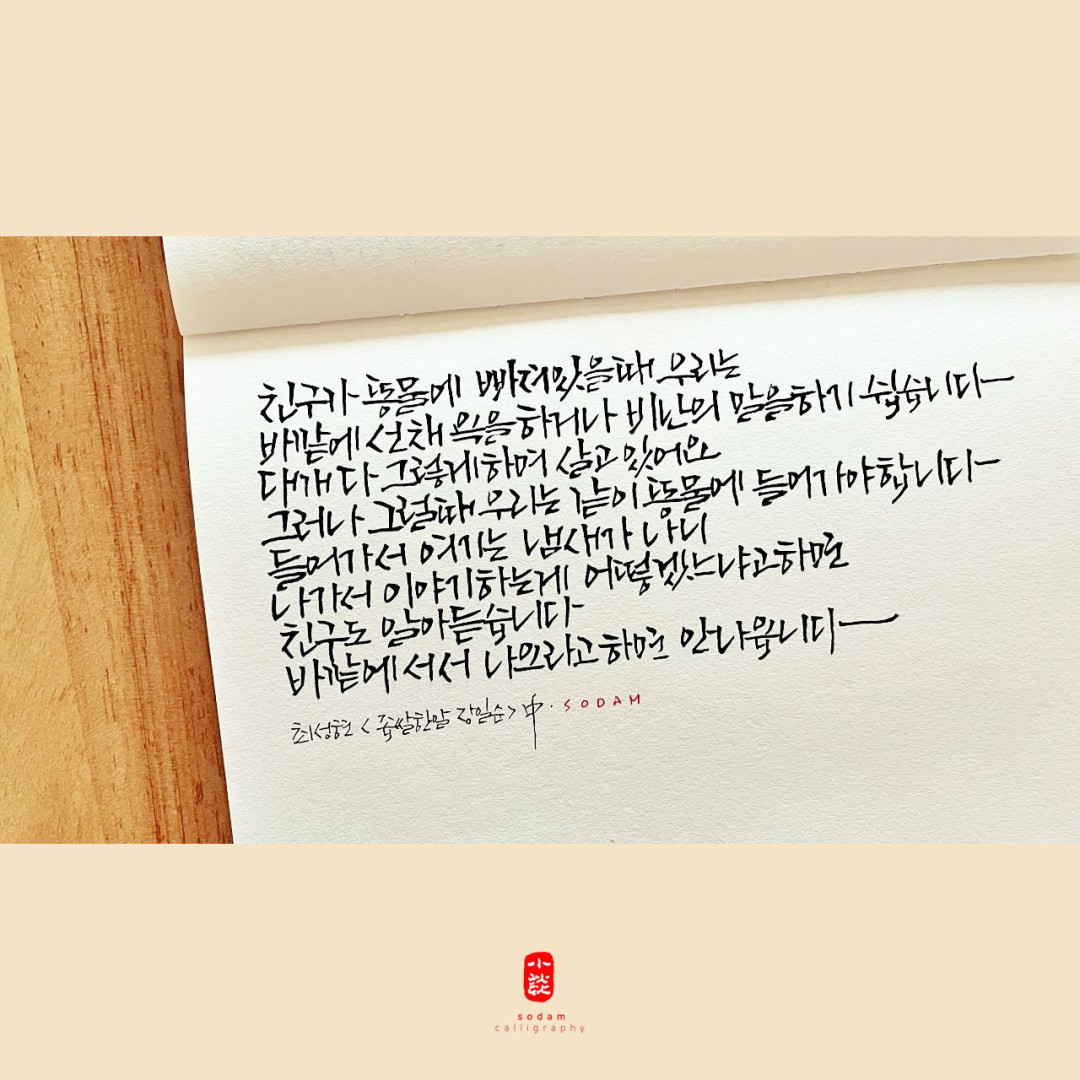 친구가 똥물에 빠져있을때 우리는
바깥에 선채 욕을하거나 비난의 말을하기 쉽습니다
대개 다 그렇게하며 살고 있어요
그러나 그럴때 우리는 같이 똥물에 들어가야합니다
들어가서 여기는 냄새가 나니
나가서 이야기하는게 어떻겠느냐고하면
친구도 알아듣습니다
바깥에 서서 나오라고하면 안나옵니다
최성현 <좁쌀한알 장일순> 中 · SODAM
小談
sodam
calligraphy